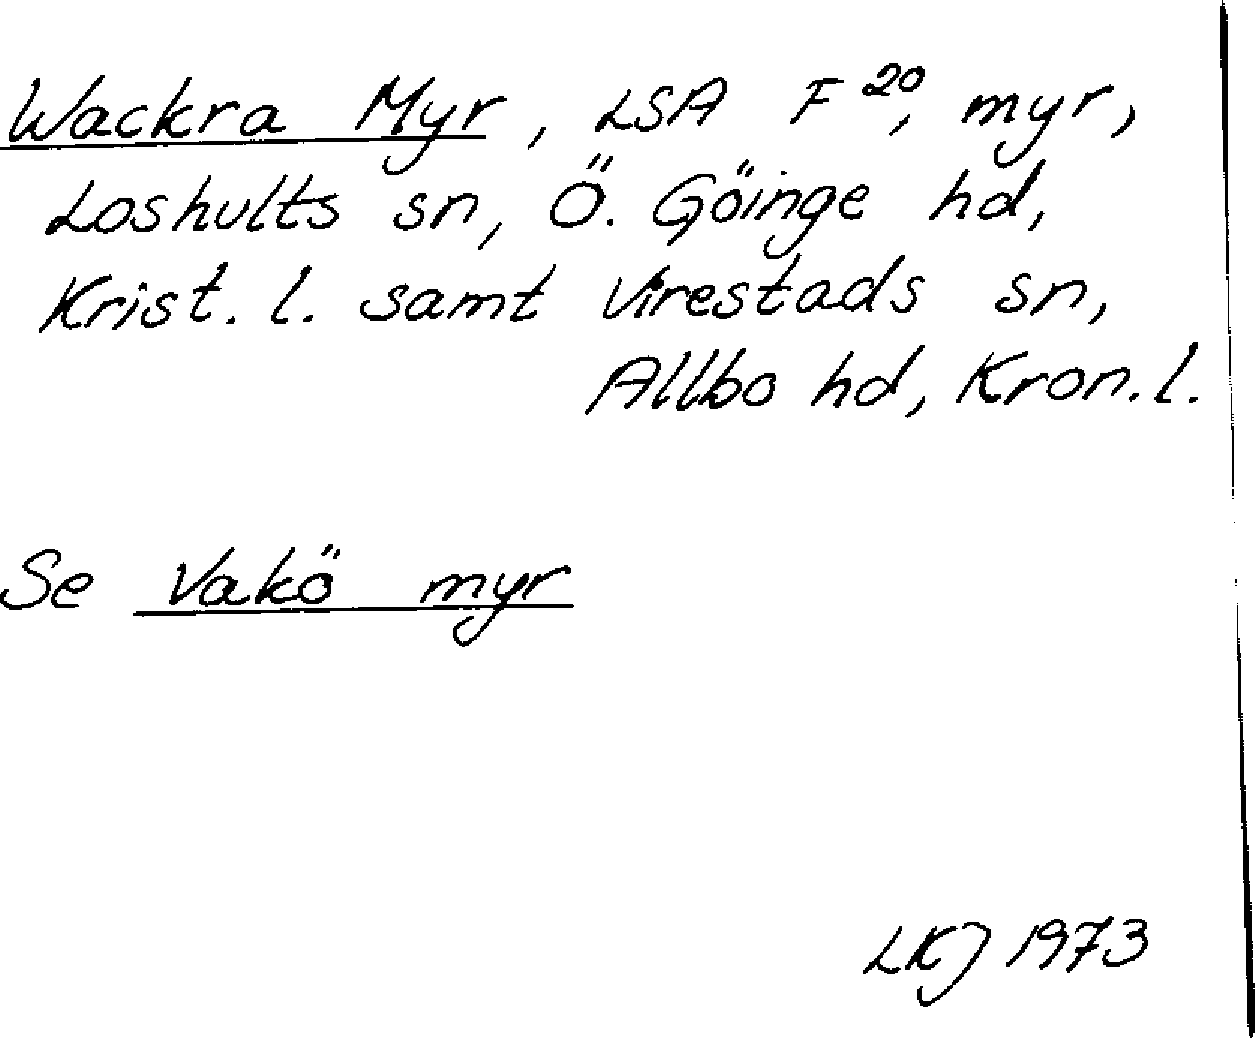 Wackra Myr, LSA F²⁰, myr,
Loshults sn, Ö. Göinge hd,
Krist. l. samt Virestads sn,
Allbo hd, Kron. l.
Se Vakö myr
LKJ 1973